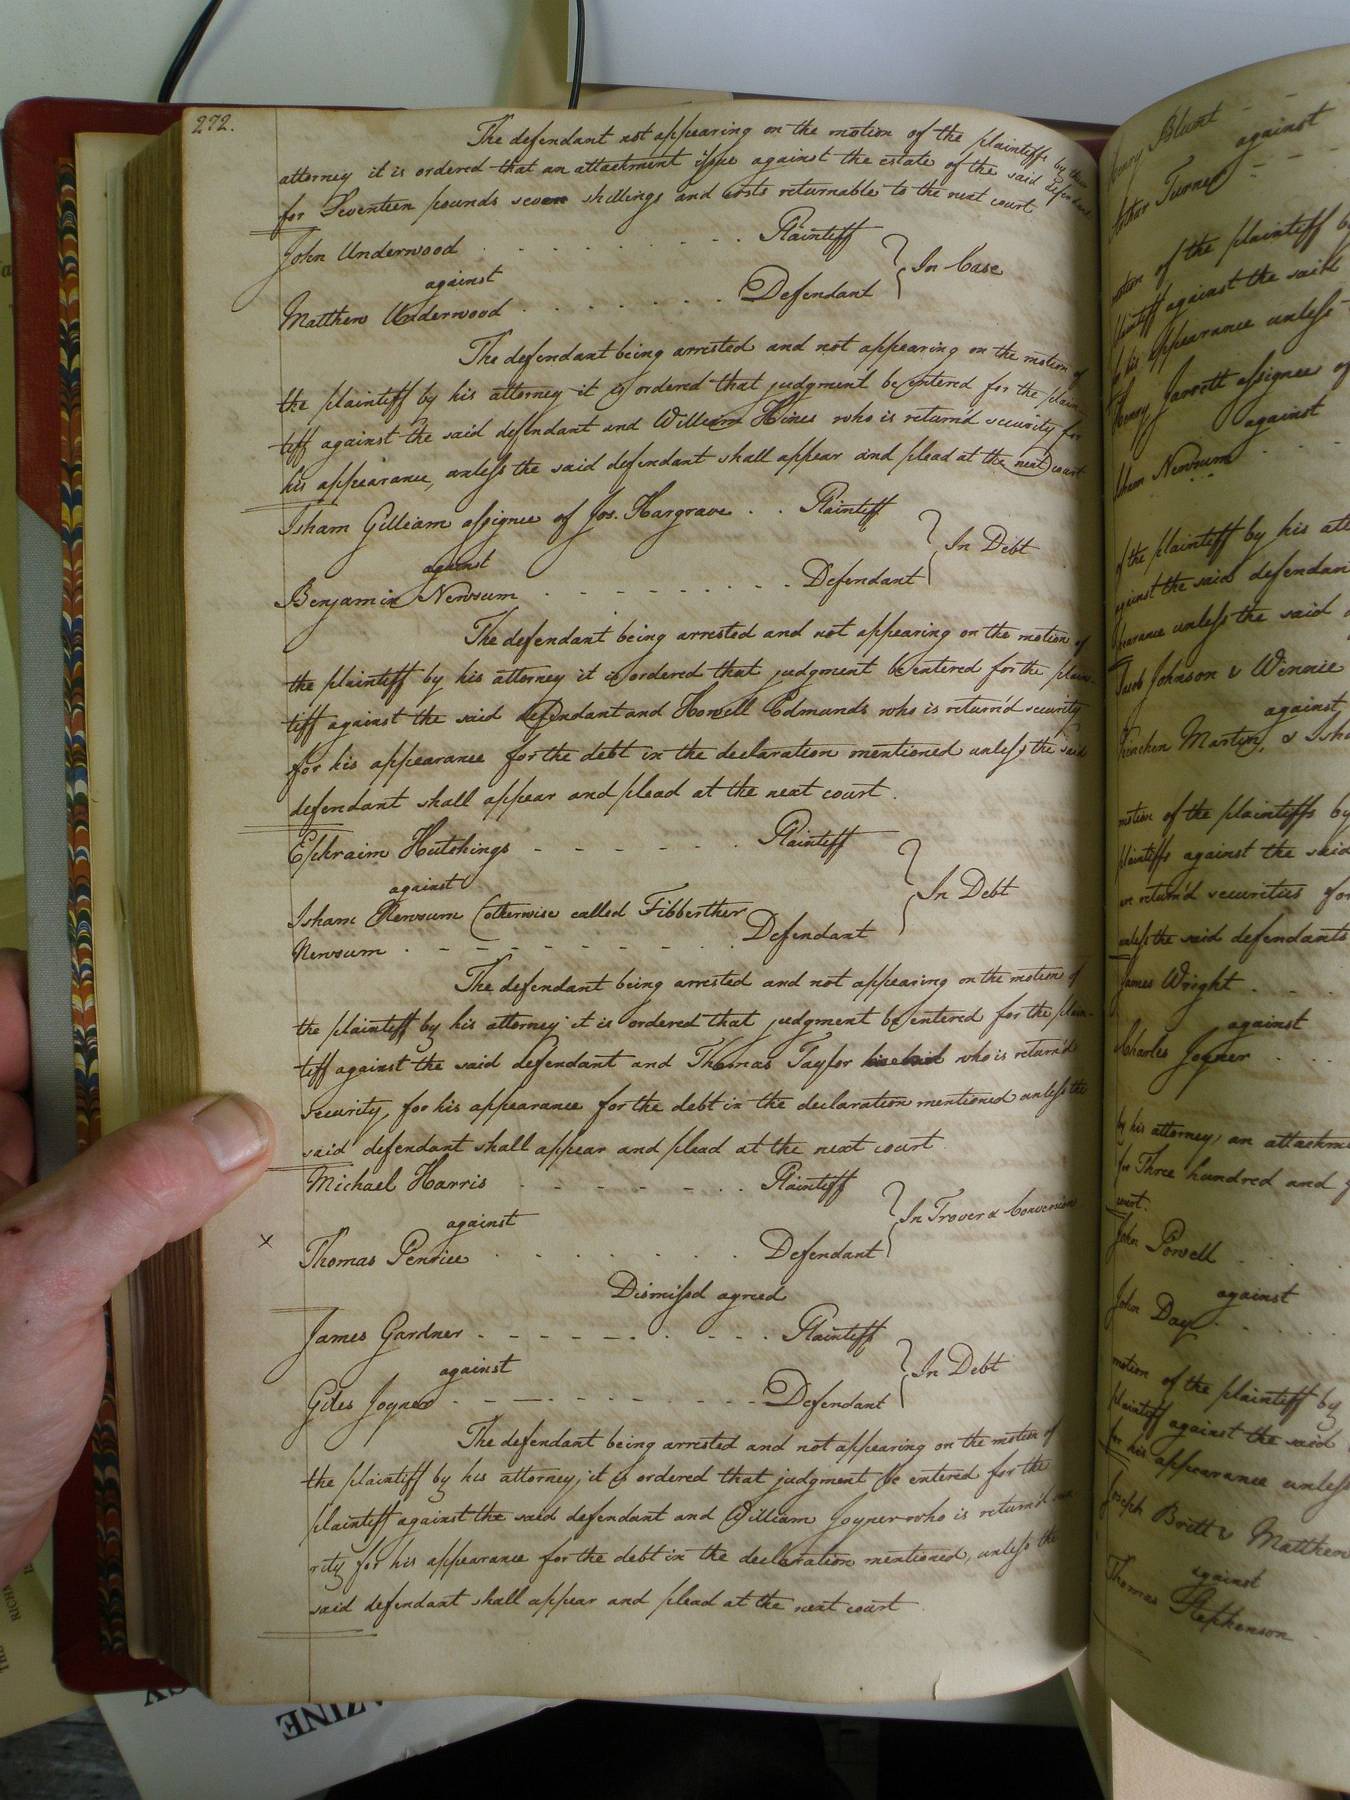 272.
The defendant not appearing on the motion of the plaintiffs by their
attorney it is ordered that an attachment issue against the estate of the said defendant
for Seventeen pounds seven shillings and costs returnable to the next court
John Underwood Plaintiff
against
In Case
Matthew Underwood Defendant
The defendant being arrested and not appearing on the motion of
the plaintiff by his attorney it is ordered that judgment be entered for the plain
tiff against the said defendant and William Hines who is return'd security for
his appearance, unless the said defendant shall appear and plead at the next court
Isham Gilliam assignee of Jos. Hargrave Plaintiff
against
In Debt
Benjamin Newsum Defendant
The defendant being arrested and not appearing on the motion of
the plaintiff by his attorney it is ordered that judgment be entered for the plain-
tiff against the said defendant and Howell Edmunds who is return'd security
for his appearance for the debt in the declaration mentioned unless the said
defendant shall appear and plead at the next court.
Ephraim Hutchings Plaintiff
against
In Debt
Isham Newsum (otherwise called Fibberther
Newsum Defendant
The defendant being arrested and not appearing on the motion of
the plaintiff by his attorney it is ordered that judgment be entered for the plain-
tiff against the said defendant and Thomas Taylor who is return'd
security, for his appearance for the debt in the declaration mentioned unless the
said defendant shall appear and plead at the next court
Michael Harris Plaintiff
against
In Trover & Conversion
x
Thomas Penrice Defendant
Dismissed agreed
James Gardner Plaintiff
against
In Debt
Giles Joyner Defendant
The defendant being arrested and not appearing on the motion of
the plaintiff by his attorney, it is ordered that judgment be entered for the
plaintiff against the said defendant and William Joyner who is return'd secu
rity for his appearance for the debt in the declaration mentioned, unless the
said defendant shall appear and plead at the next court
Henry Blunt
against
Arthur Turner
motion of the plaintiff
plaintiff against the said
his appearance unless
Henry Jarrett assignee of
against
Isham Newsum
of the plaintiff by his
against the said
unless the said
Jacob Johnson & Winnie
against
Kinchen Martin, &
motion of the plaintiffs by
plaintiffs against the said
return'd securities for
unless the said defendants
James Wright
against
Charles Joyner
by his attorney, an
for Three hundred and
court.
John Powell
against
John Day
motion of the plaintiff by
plaintiff against the said
for his appearance unless
Joseph Britt & Matthew
against
Thomas Stephenson
AZINE